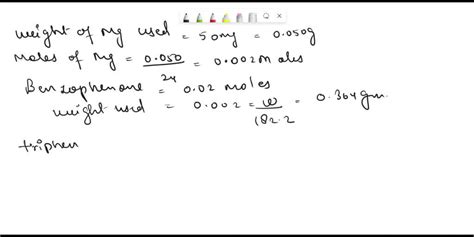 weight of Mg used = 50mg = 0.050g
Moles of Mg = 0.050/24 = 0.002 moles
Benzophenone = 0.02 moles
weight used = 0.002 = w/182.2 = 0.364 gm
triphen